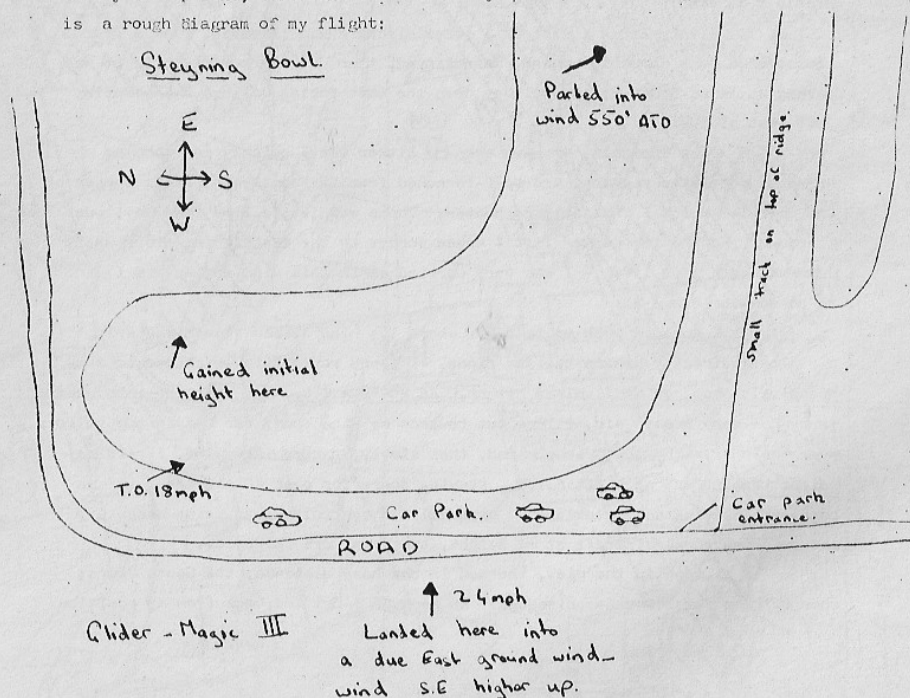 is a rough diagram of my flight:
Steyning Bowl
E
N
S
W
Parked into
wind 550' ATO
small track on top of ridge.
Gained initial
height here
T.O. 18mph
Car Park.
Car park
entrance.
ROAD
24mph
Glider - Magic III
Landed here into
a due East ground wind -
wind S.E higher up.